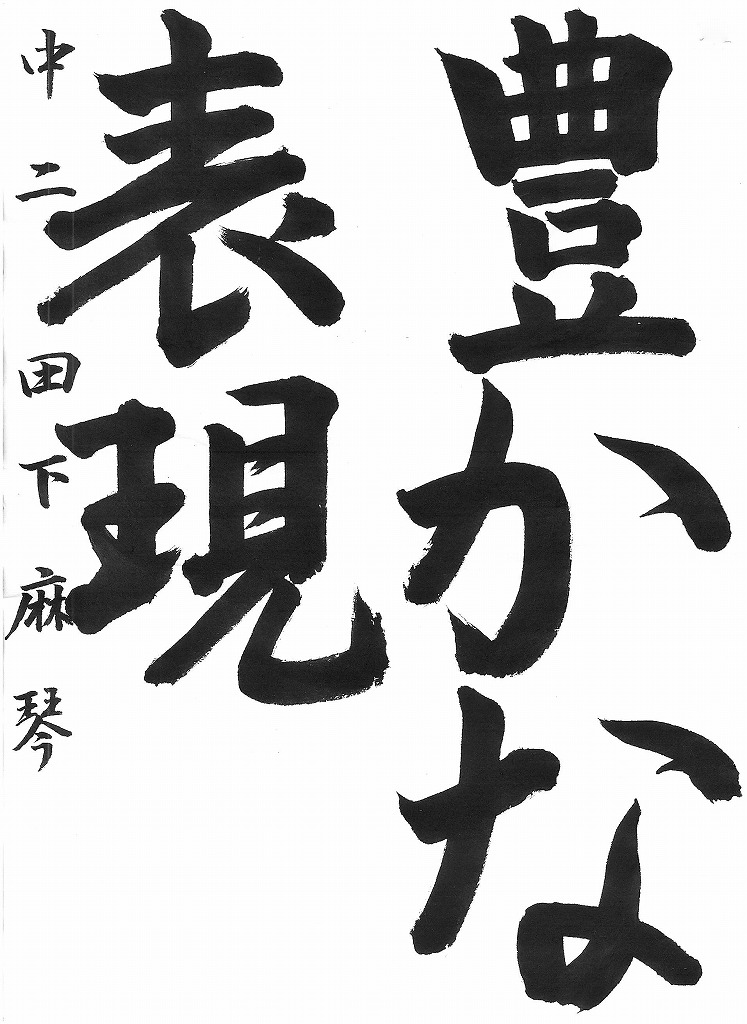 豊かな
表現
中二田下麻琴